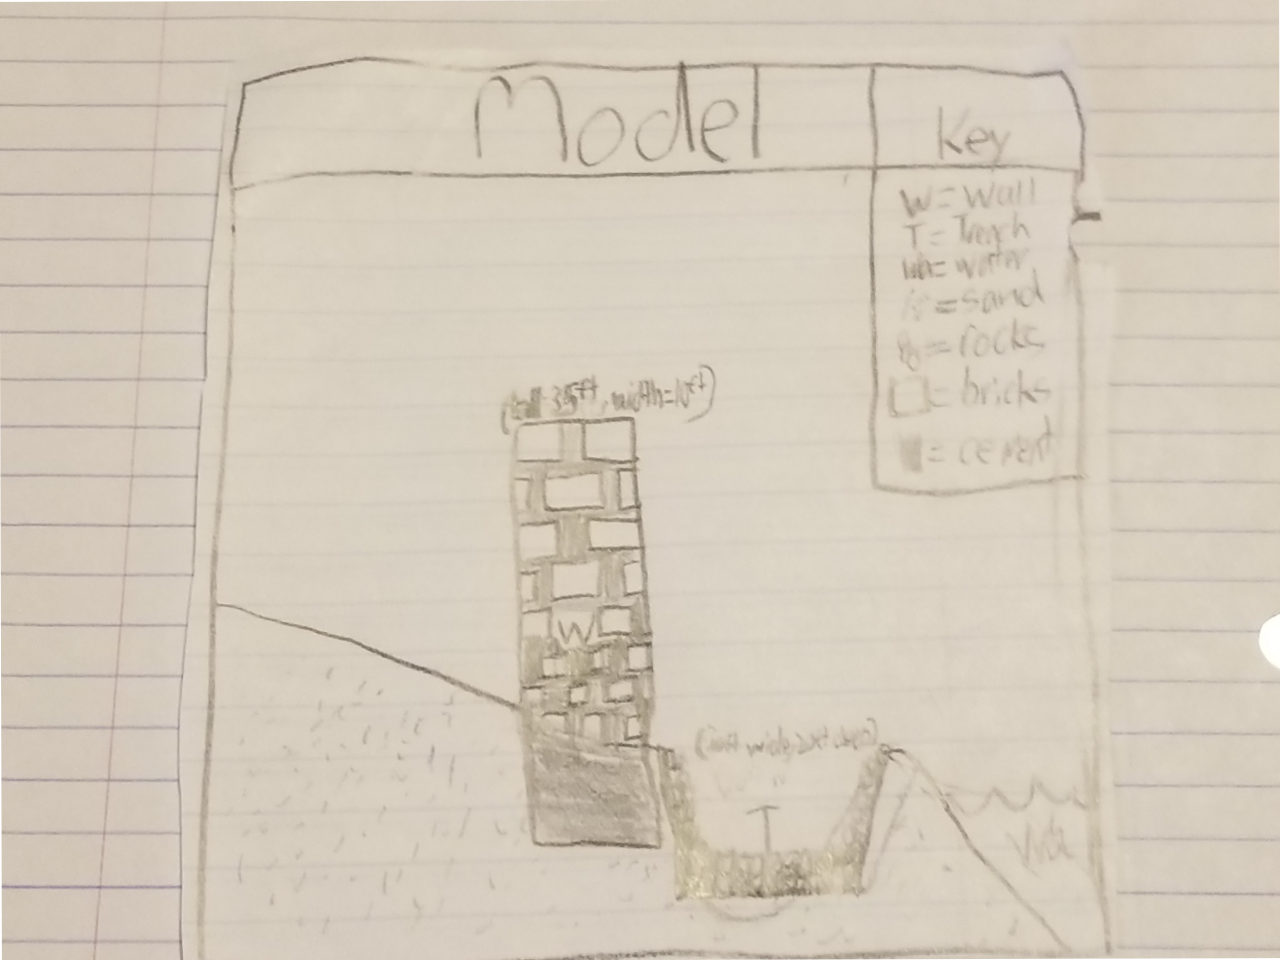 Model
Key
W = Wall
T = Trench
Wa = water
= sand
= rocks
= bricks
= cement
35ft, width=10ft)
W
wide, 20ft deep)
T
Wa